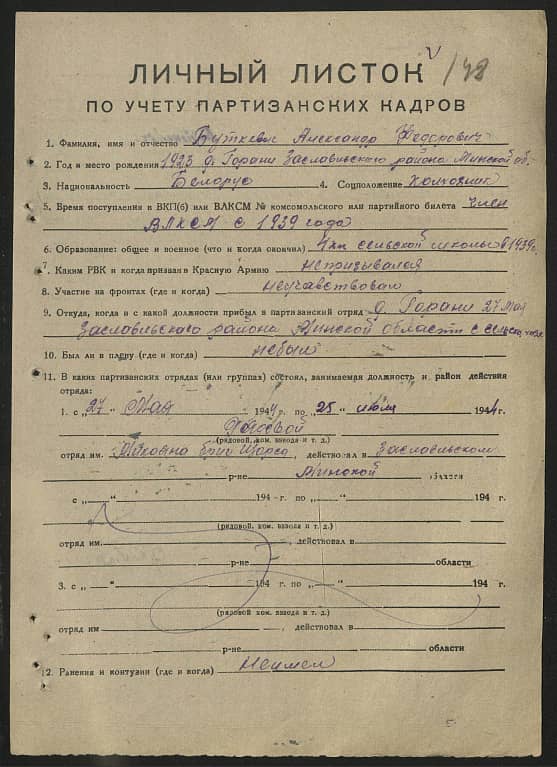 148
ЛИЧНЫЙ ЛИСТОК
ПО УЧЕТУ ПАРТИЗАНСКИХ КАДРОВ
1. Фамилия, имя и отчество Буткевич Александр Федорович
2. Год и место рождения 1923 д. Горани Заславльского района Минской об.
3. Национальность Белорус 4. Соцположение Колхозник
5. Время поступления в ВКП(б) или ВЛКСМ № комсомольского или партийного билета Член
ВЛКСМ с 1939 года
6. Образование: общее и военное (что и когда окончил) 4 кл сельской школы в 1939г.
7. Каким РВК и когда призван в Красную Армию непризывался
8. Участие на фронтах (где и когда) неучавствовал
9. Откуда, когда и с какой должности прибыл в партизанский отряд д. Горани 27 Мая
Заславльского района Минской области с сельск.
10. Был ли в плену (где и когда) небыл
11. В каких партизанских отрядах (или группах) состоял, занимаемая должность и район действия
отряда:
1. с „27“ Мая 1944 г. по „25“ июля 1944 г.
Рядовой
(рядовой, ком. взвода и т. д.)
отряд им. бриг Щорса, действовал в Заславльском
р-не Минской области
с „ “ 194 г. по „ “ 194 г.
(рядовой, ком. взвода и т. д.)
отряд им. , действовал в
р-не области
3. с „ “ 194 г. по „ “ 194 г.
(рядовой, ком. взвода и т. д.)
отряд им , действовал в
р-не области
12. Ранения и контузии (где и когда) Неимел